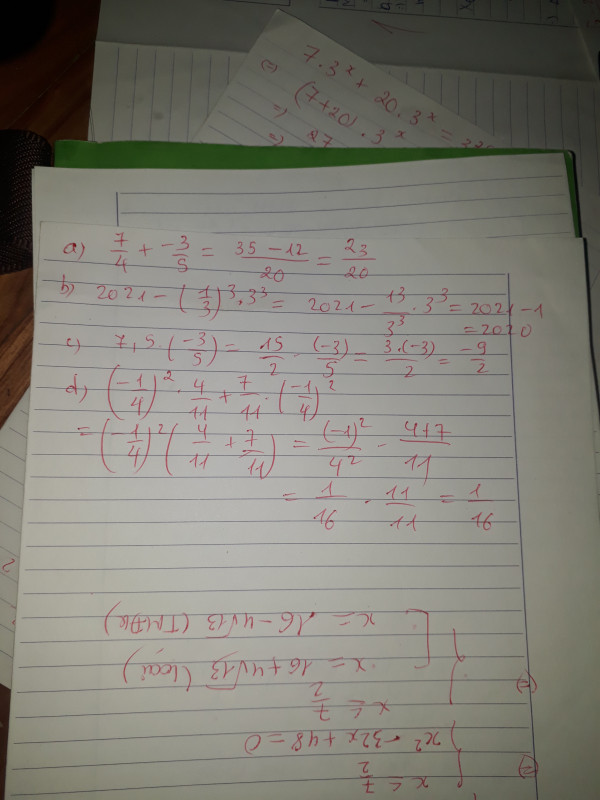 7.3^x + 20.3^x = 
(=) (7+20).3^x
(=) 27
a) 7/4 + -3/5 = 35-12/20 = 23/20
b) 2021 - (1/3)^3.3^3 = 2021 - 1^3/3^3 . 3^3 = 2021-1
= 2020
c) 7,5.(-3/5) = 15/2 . (-3)/5 = 3.(-3)/2 = -9/2
d) (-1/4)^2 . 4/11 + 7/11 . (-1/4)^2
= (-1/4)^2 (4/11 + 7/11) = (-1)^2/4^2 - 4+7/11
= 1/16 . 11/11 = 1/16
(=) { x ≤ 7/2
x^2 - 32x + 48 = 0
(=) { x ≤ 7/2
[ x = 16+4√13 (loại)
x = 16-4√13 (TMĐK)